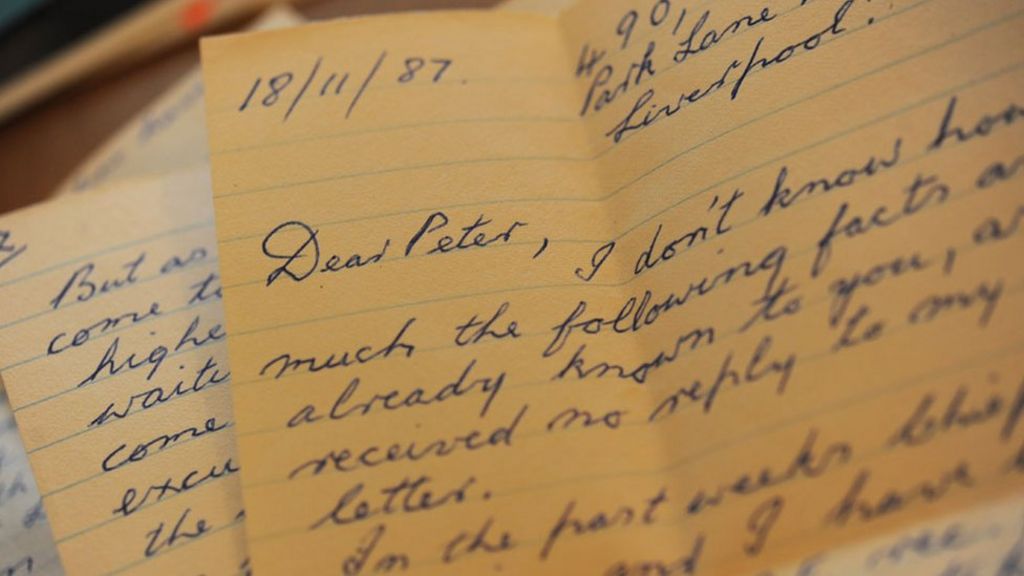 18/11/87.
490,
Park Lane
Liverpool.
Dear Peter,
I don't know how
much the following facts
already known to you,
received no reply to my
letter.
In the past weeks
and I have
But as
come to
highe
waite
come
excu
the